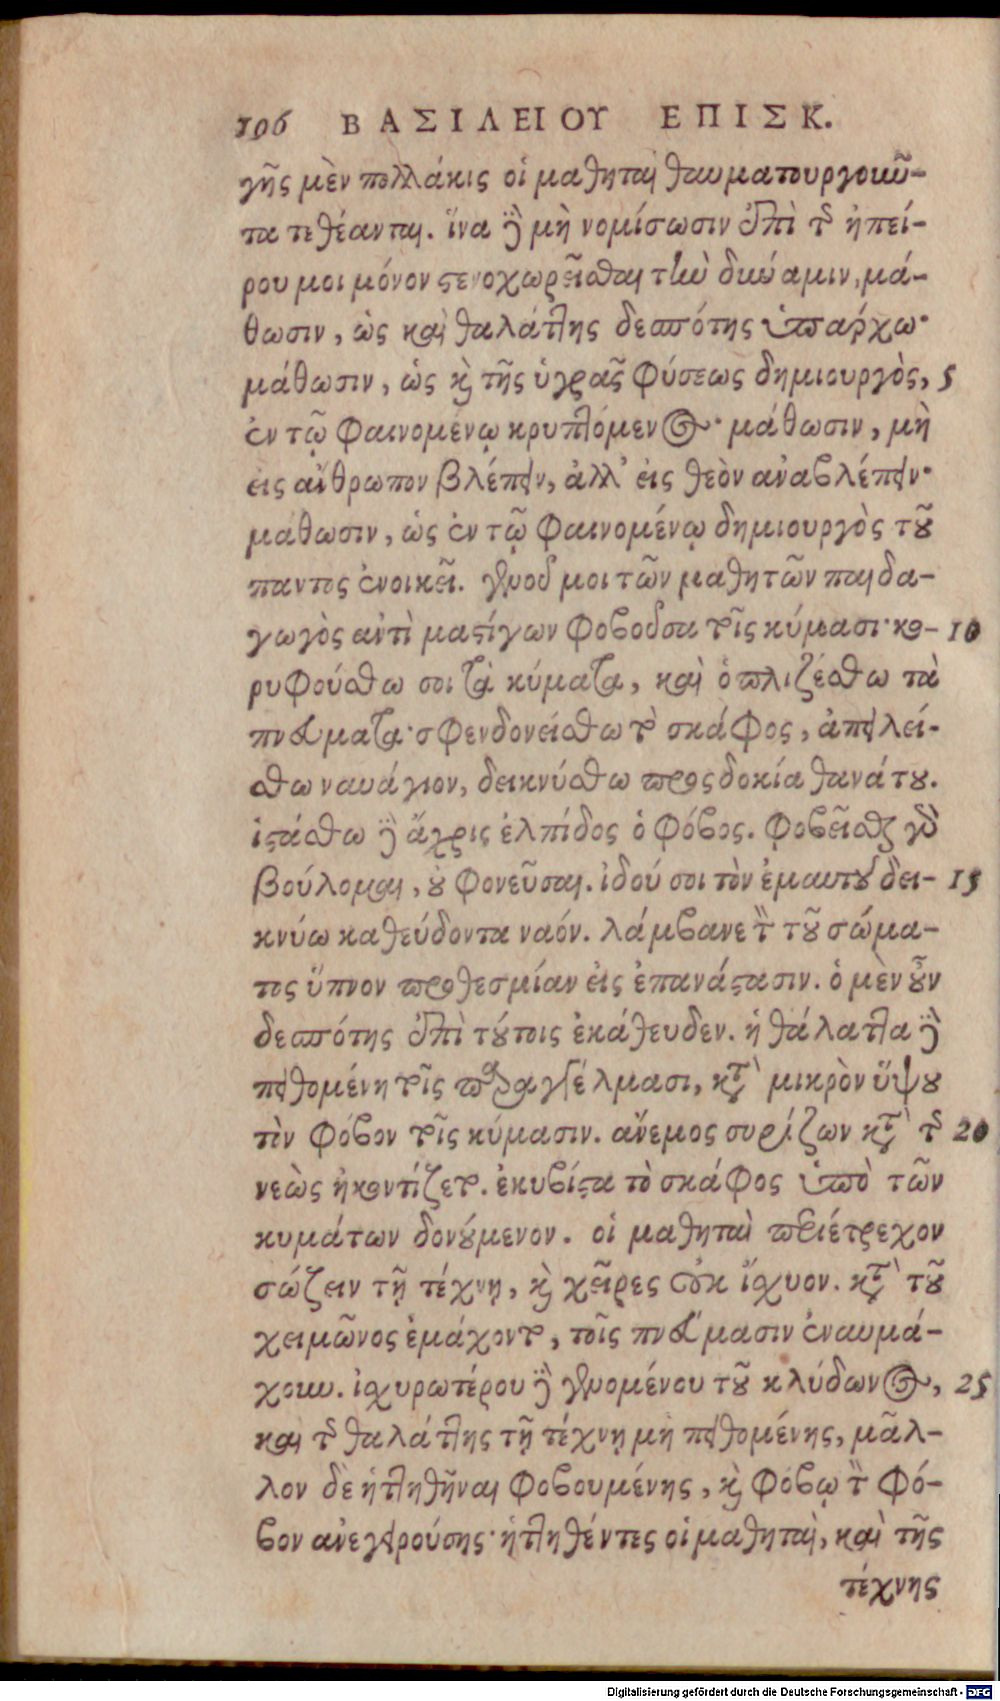 106 ΒΑΣΙΛΕΙΟΥ ΕΠΙΣΚ.
γῆς μὲν πολλάκις οἱ μαθηταὶ θαυματουργοιῶ-
τα τεθέανται. ἵνα δὲ μὴ νομίσωσιν ἐπὶ τῆς ἠπεί-
ρου μοι μόνον στενοχωρεῖσθαι τὴν δύναμιν, μά-
θωσιν, ὡς καὶ θαλάττης δεσπότης ὑπάρχω·
μάθωσιν, ὡς καὶ τῆς ὑγρᾶς φύσεως δημιουργὸς, 5
ἐν τῷ φαινομένῳ κρυπτόμενος· μάθωσιν, μὴ
εἰς ἄνθρωπον βλέπειν, ἀλλ' εἰς θεὸν ἀναβλέπειν·
μάθωσιν, ὡς ἐν τῷ φαινομένῳ δημιουργὸς τοῦ
παντὸς ἐνοικεῖ. γενοῦ μοι τῶν μαθητῶν παιδα-
γωγὸς ἀντὶ μαστίγων φοβοῦσα τοῖς κύμασι· κο- 10
ρυφούσθω σοι τὰ κύματα, καὶ ὁπλιζέσθω τὰ
πνεύματα· σφενδονείσθω τὸ σκάφος, ἀπειλεί-
σθω ναυάγιον, δεικνύσθω προσδοκία θανάτου.
ἱστάσθω δὲ ἄχρις ἐλπίδος ὁ φόβος. φοβεῖσθαι γὰρ
βούλομαι, οὐ φονεῦσαι. ἰδού σοι τὸν ἐμαυτοῦ δει- 15
κνύω καθεύδοντα ναόν. λάμβανε τὸν τοῦ σώμα-
τος ὕπνον προθεσμίαν εἰς ἐπανάστασιν. ὁ μὲν οὖν
δεσπότης ἐπὶ τούτοις ἐκάθευδεν. ἡ θάλαττα δὲ
πειθομένη τοῖς παραγγέλμασι, κατὰ μικρὸν ὕψου
τὸν φόβον τοῖς κύμασιν. ἄνεμος συρίζων κατὰ τῆς 20
νεὼς ἠκοντίζετο. ἐκυβίστα τὸ σκάφος ὑπὸ τῶν
κυμάτων δονούμενον. οἱ μαθηταὶ περιέτρεχον
σώζειν τῇ τέχνῃ, καὶ χεῖρες οὐκ ἴσχυον. κατὰ τοῦ
χειμῶνος ἐμάχοντο, τοῖς πνεύμασιν ἐναυμά-
χουν. ἰσχυρωτέρου δὲ γενομένου τοῦ κλύδωνος, 25
καὶ τῆς θαλάττης τῇ τέχνῃ μὴ πειθομένης, μᾶλ-
λον δὲ ἡττηθῆναι φοβουμένης, καὶ φόβῳ τὸν φό-
βον ἀνεγειρούσης· ἡττηθέντες οἱ μαθηταὶ, καὶ τῆς
τέχνης
Digitalisierung gefördert durch die Deutsche Forschungsgemeinschaft - DFG